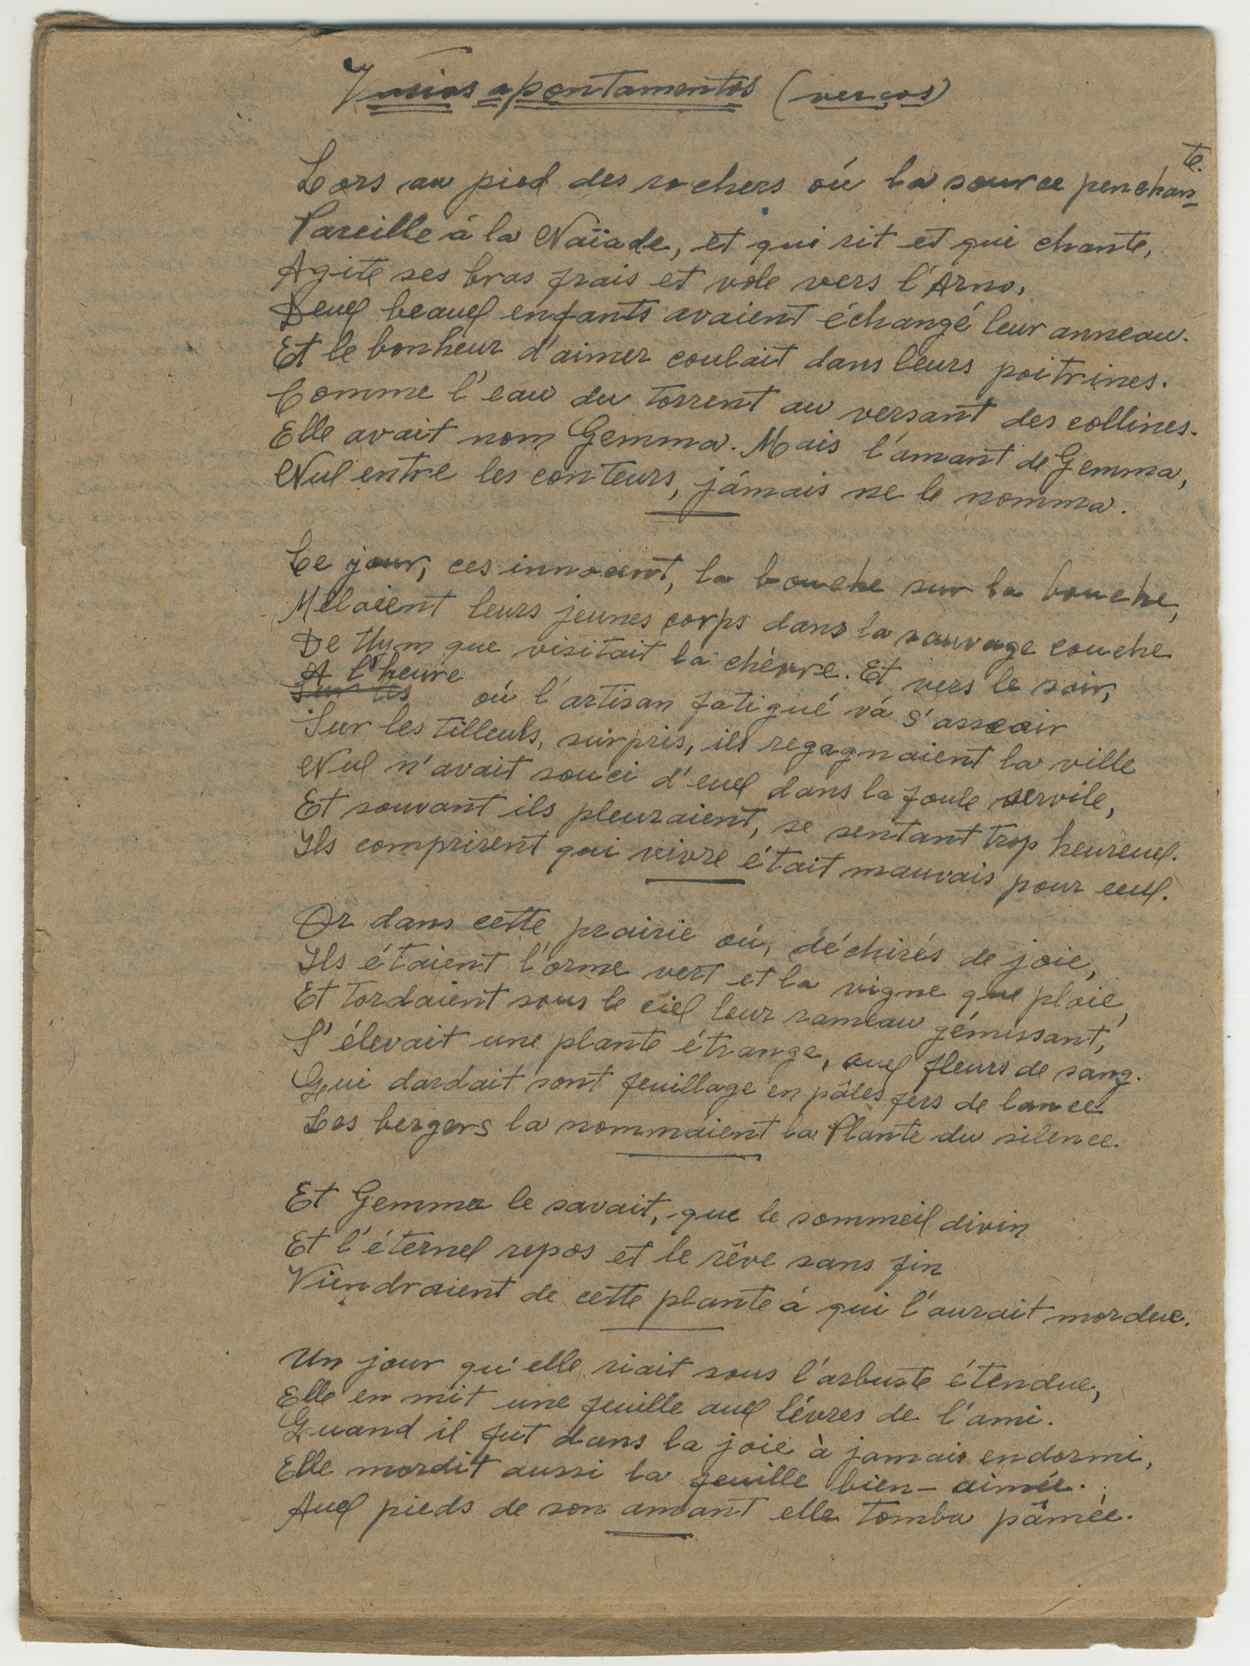 Varios apontamentos (verços)
Lors au pied des rochers oú la source penchan-
te.
Pareille á la Naïade, et qui rit et qui chante,
Agite ses bras frais et vole vers l'Arno,
Deux beaux enfants avaient échangé leur anneau.
Et le bonheur d'aimer coulait dans leurs poitrines.
Comme l'eau du torrent au versant des collines.
Elle avait nom Gemma. Mais l'amant de Gemma,
Nul entre les conteurs, jámais ne le nomma.
Le jour, ces innocent, la bouche sur la bouche,
Mêlaient leurs jeunes corps dans la sauvage couche
De thym que visitait la chèvre. Et vers le soir,
A l'heure
Sur les où l'artisan fatigué vá s'asseoir
Sur les tilleuls, surpris, ils regagnaient la ville
Nul n'avait souci d'eux dans la foule servile,
Et souvant ils pleuraient, se sentant trop heureux.
Ils comprirent qui vivre était mauvais pour eux.
Or dans cette prairie oú, déchirés de joie,
Ils étaient l'orme vert et la vigne que ploie,
Et tordaient sous le ciel leur rameau gémissant,
S'élevait une plante étrange, aux fleurs de sang.
Qui dardait sont feuillage en pâles fers de lance
Les bergers la nommaient la Plante du silence.
Et Gemma le savait, que le sommeil divin
Et l'éternel repos et le rêve sans fin
Viendraient de cette plante á qui l'aurait mordue.
Un jour qu'elle riait sous l'arbuste étendue,
Elle en mit une feuille aux lévres de l'ami.
Quand il fut dans la joie à jamais endormi,
Elle mordit aussi la feuille bien-aimée.
Aux pieds de son amant elle tomba pâmée.